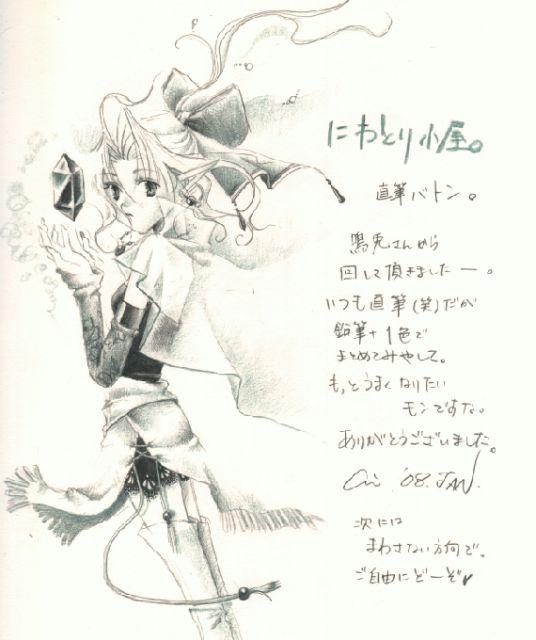 にわとり小屋。
直筆バトン。
鳴兎さんから
回して頂きましたー。
いつも直筆(笑)だが
鉛筆+1色で
まとめてみやして。
もっとうまくなりたい
モンですな。
ありがとうございました。
'08.JAN.
次には
まわさない方向で。
ご自由にどーぞ♥